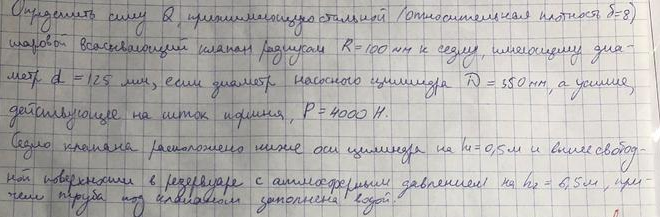 Определить силу Q, прижимающую стальной (относительная плотность δ=8)
шаровой всасывающий клапан радиусом R=100 мм к седлу, имеющему диа-
метр d=125 мм, если диаметр насосного цилиндра D=350 мм, а усилие,
действующее на шток поршня, P=4000 Н.
Седло клапана расположено ниже оси цилиндра на h₁=0,5 м и выше свобод-
ной поверхности в резервуаре с атмосферным давлением на h₂=6,5 м, при-
чем труба под клапаном заполнена водой.